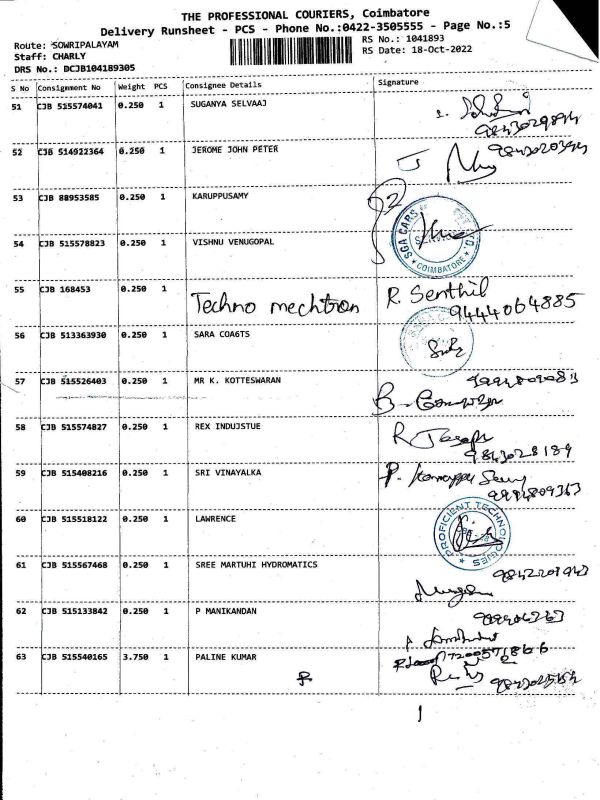 THE PROFESSIONAL COURIERS, Coimbatore
Delivery Runsheet - PCS - Phone No.:0422-3505555 - Page No.:5
Route: SOWRIPALAYAM
Staff: CHARLY
DRS No.: DCJB104189305
RS No.: 1041893
RS Date: 18-Oct-2022
S No Consignment No Weight PCS Consignee Details Signature
51 CJB 515574041 0.250 1 SUGANYA SELVAAJ
52 CJB 514922364 0.250 1 JEROME JOHN PETER
53 CJB 88953585 0.250 1 KARUPPUSAMY
54 CJB 515578823 0.250 1 VISHNU VENUGOPAL
SGA CARS
COIMBATORE
55 CJB 168453 0.250 1 Techno mechtron R. Senthil
9444064885
56 CJB 513363930 0.250 1 SARA COA6TS
57 CJB 515526403 0.250 1 MR K. KOTTESWARAN
58 CJB 515574827 0.250 1 REX INDUJSTUE R Joseph
9843028189
59 CJB 515408216 0.250 1 SRI VINAYALKA
9994809363
60 CJB 515518122 0.250 1 LAWRENCE
PROFICIENT TECHNOLOGIES
61 CJB 515567468 0.250 1 SREE MARTUHI HYDROMATICS
62 CJB 515133842 0.250 1 P MANIKANDAN
63 CJB 515540165 3.750 1 PALINE KUMAR